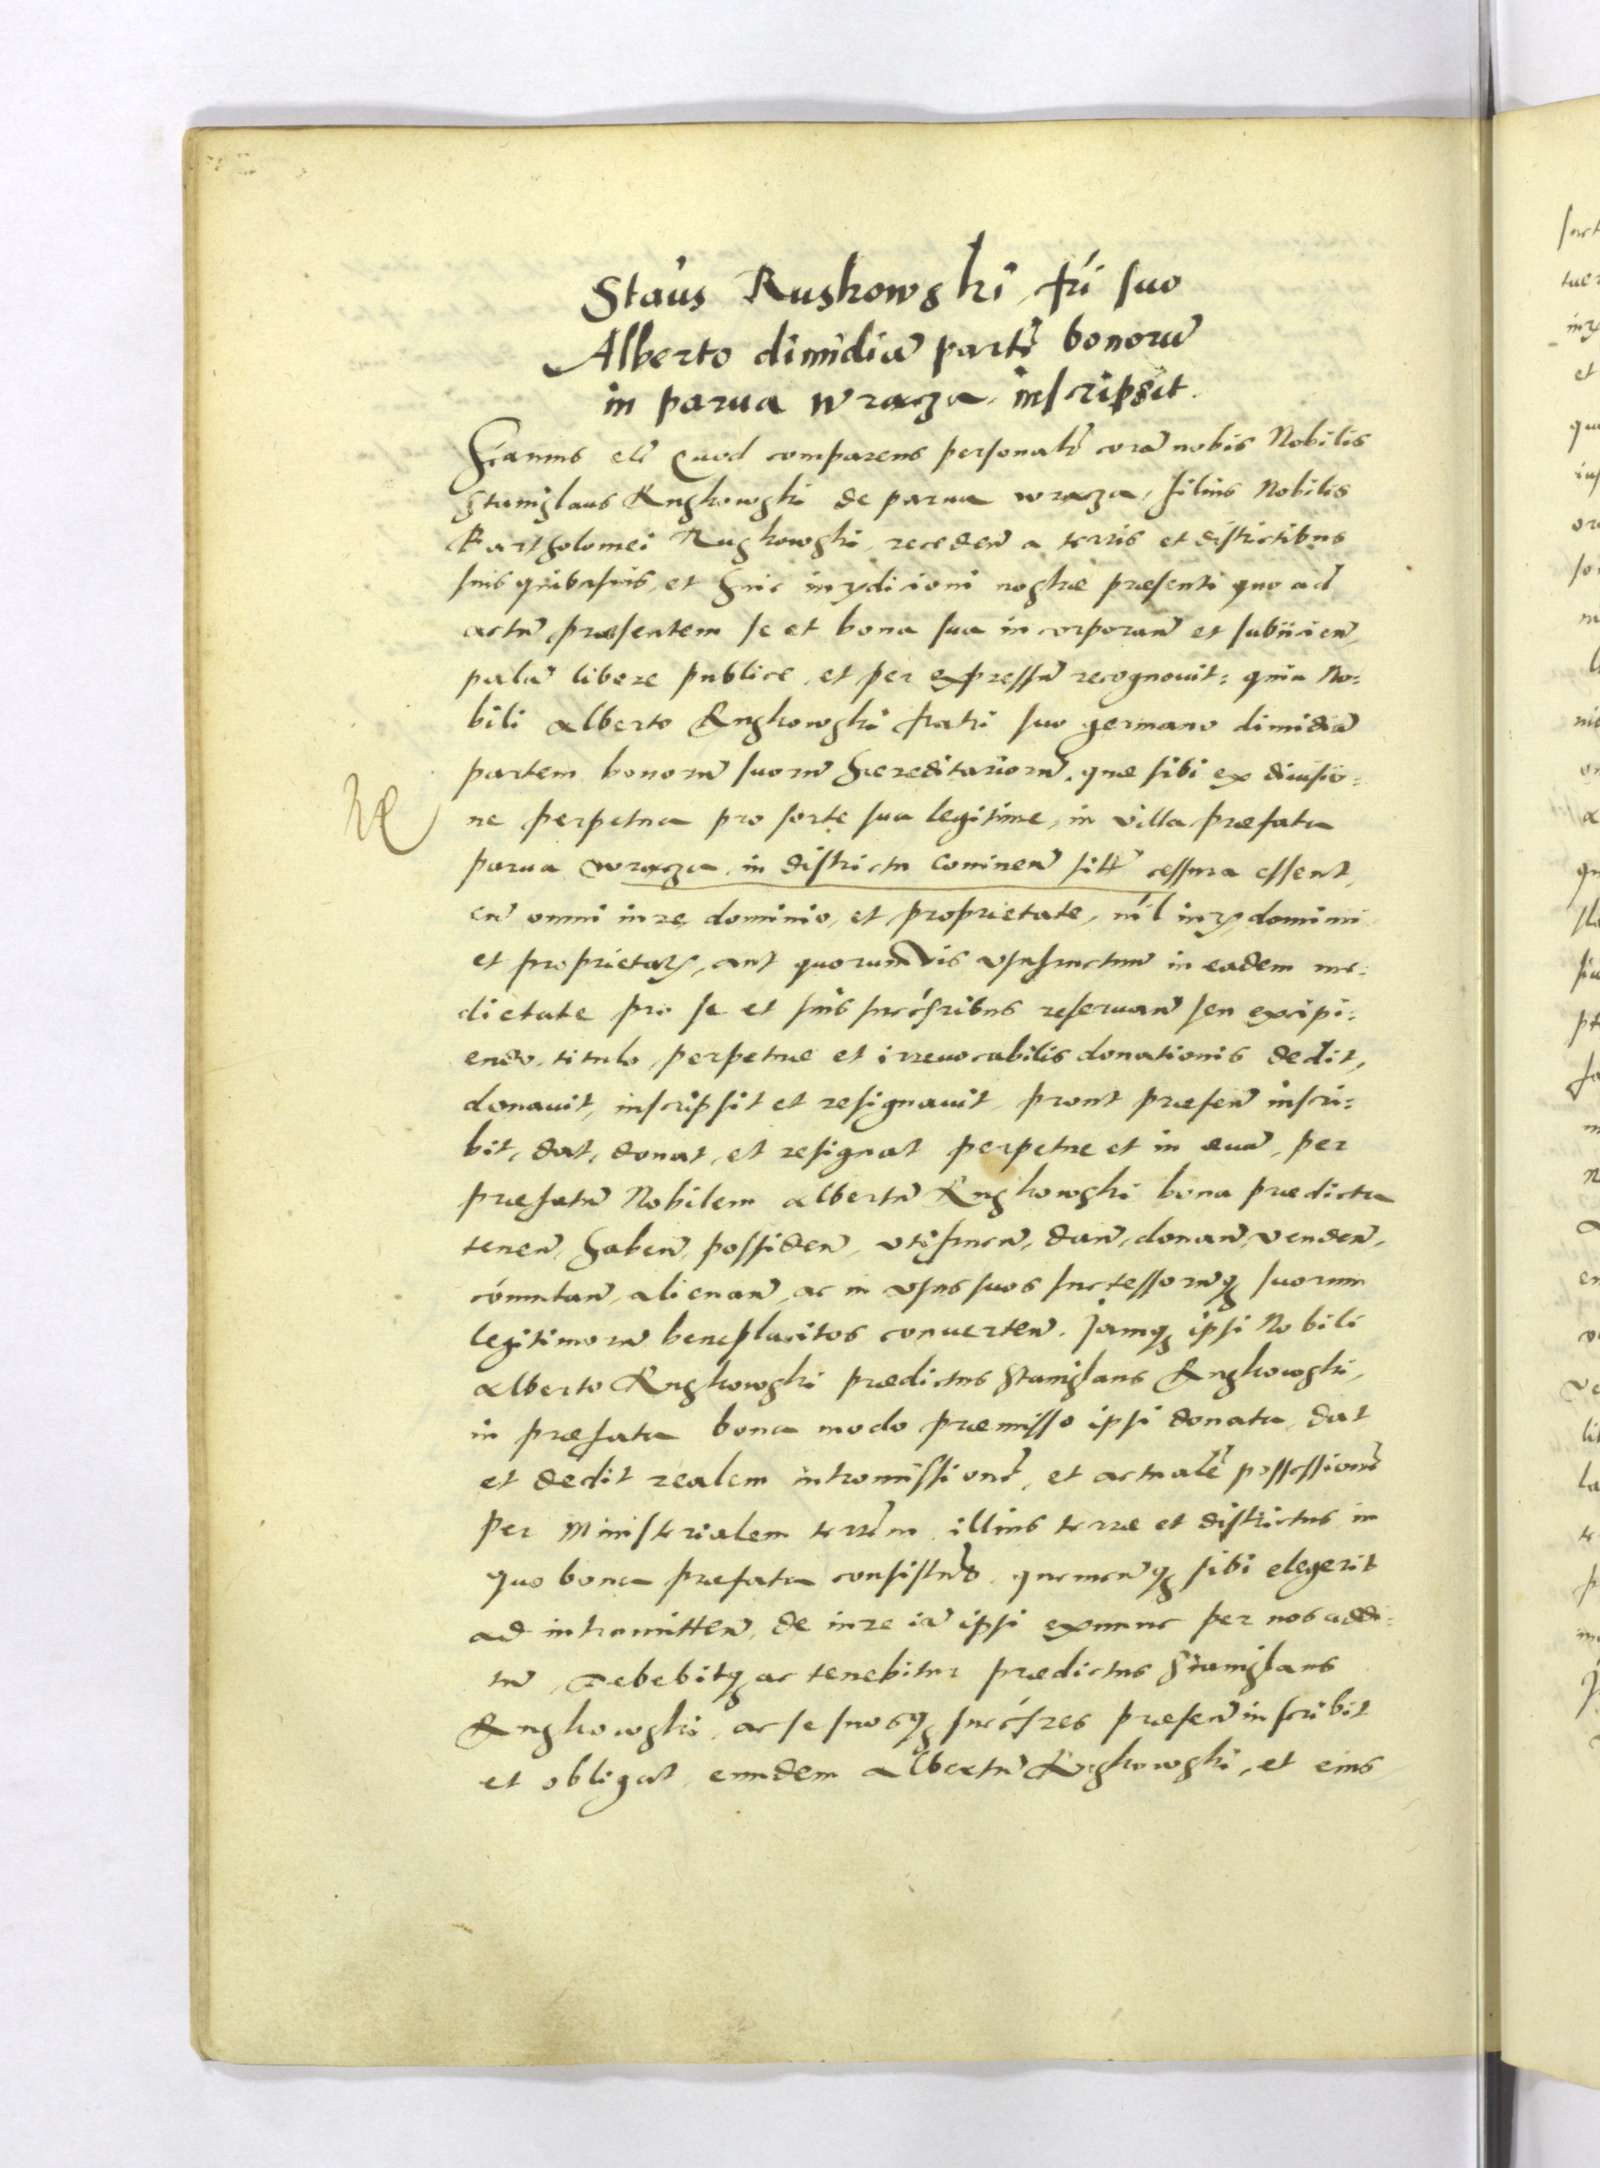 Staus Ruskowski fri suo
Alberto dimidia parte bonoru
in parua wracza inscripsit.
Sigmus etc Quod comparens personalr cora nobis Nobilis
Stanislaus Ruskowski de parua wracza, filius Nobilis
Bartholomei Ruskowski, receden a terris et districtibus
suis quibusuis, et huic iurydicioni nostræ præsenti quo ad
actu præsentem se et bona sua incorporan et subiicien,
pala libere publice, et per expressu recognouit: quia No:
bili Alberto Ruskowski fratri suo germano dimidia
partem bonoru suoru hæreditarioru, quæ sibi ex diuisio:
ne perpetua pro sorte sua legitime, in villa præfata
parua wracza, in districtu Coninen sitt cessura essent,
cu omni iure dominio, et proprietate, nil iurꝫ dominii
et proprietatꝫ, aut quorumvis vsufructuu in eadem me:
dietate pro se et suis succsribus reseruan seu excipi:
endo, titulo perpetuæ et irreuocabilis donationis dedit,
donauit, inscripsit et resignauit, prout præsen inscri:
bit, dat, donat, et resignat perpetue et in æuu, per
præfatu Nobilem Albertu Ruskowski bona prædicta
tenen, haben, possiden, vtifruen, dan, donan, venden,
comutan, alienan, ac in vsus suos successoruqꝫ suorum
legitimoru beneplacitos conuerten. Iamqꝫ ipsi Nobili
Alberto Ruskowski prædictus Stanislaus Ruskowski,
in præfata bona modo præmisso ipsi donata, dat
et dedit realem intromissione, et actuale possessione
per Ministerialem terrem illius terræ et districtus in
quo bona præfata consistut, quemcuqꝫ sibi elegerit
ad intromitten, de iure ia ipsi exnunc per nos addi:
tu, Debebitqꝫ ac tenebitur prædictus Stanislaus
Ruskowski, ac se suosqꝫ succsres præsen inscribit
et obligat, eundem Albertu Ruskowski, et eius